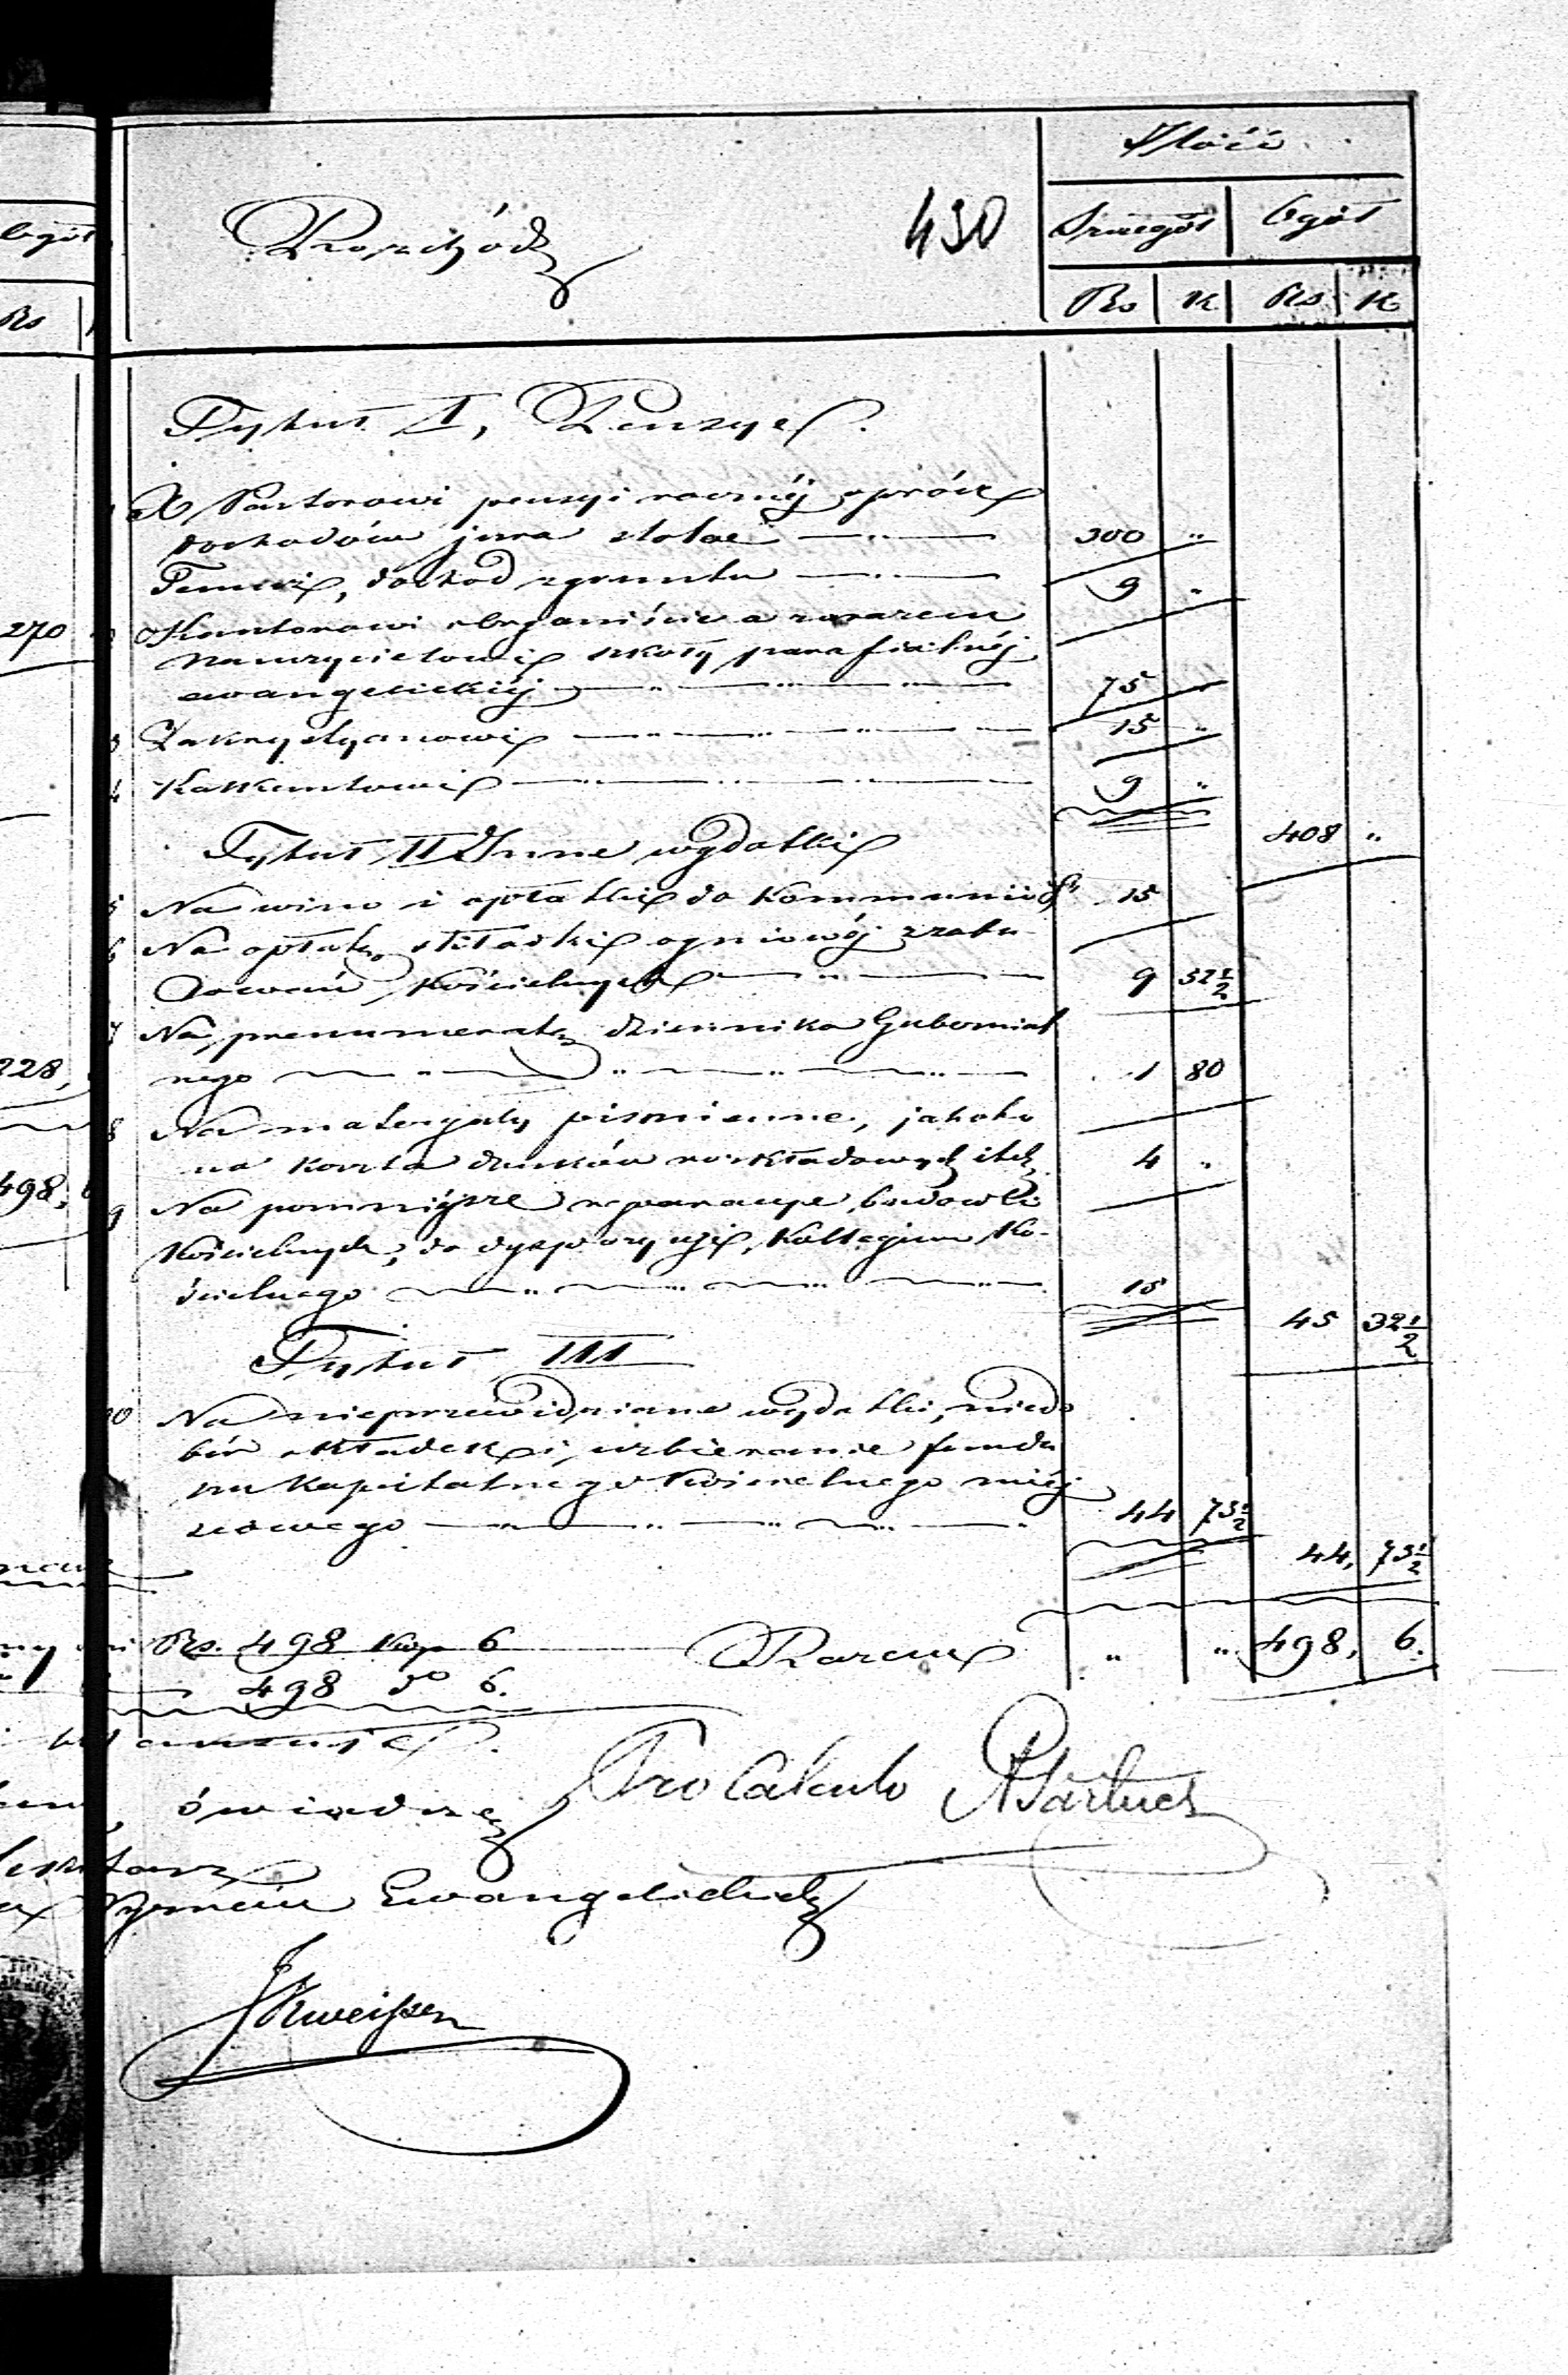 Ilość
Rozchód
430
Szczegół Ogół
Rs K Rs K
Ogół
Rs
Tytuł I, Penzye.
X Pastorowi penzyi rocznéj oprócz
dochodów jura stolae 300 "
Temuż, dochód z gruntu 9 "
270
Kantorowi i Organiście a zarazem
nauczycielowi szkoły parafialnéj
ewangelickiéj 75 "
3 Zakrystyanowi 15 "
4 Kalkantowi 9 "
408 "
Tytuł II Inne wydatki
5 Na wino i opłatki do Kommunii 15
6 Na opłatę składki ogniowéj z zabu-
dowań Kościelnych 9 52½
7 Na prenumeratę dziennika Gubernial
nego 1 80
228,
8 Na materyały piśmienne, jakoto
na koszta druków rozkładowych itd 4 "
498,
9 Na pomniejsze reparacye budowli
Kościelnych, do dyspozycyi Kollegium Ko-
ścielnego 15
45 32½
Tytuł III
10 Na nieprzewidziane wydatki, niedo
bór składek i uzbieranie fundu
szu kapitalnego Kościelnego miéj
scowego 44 73½
44, 73½
Rs. 498 kop 6 Razem " " 498, 6.
498 do 6.
świadczę
Pro Calculo
Ewangelickich